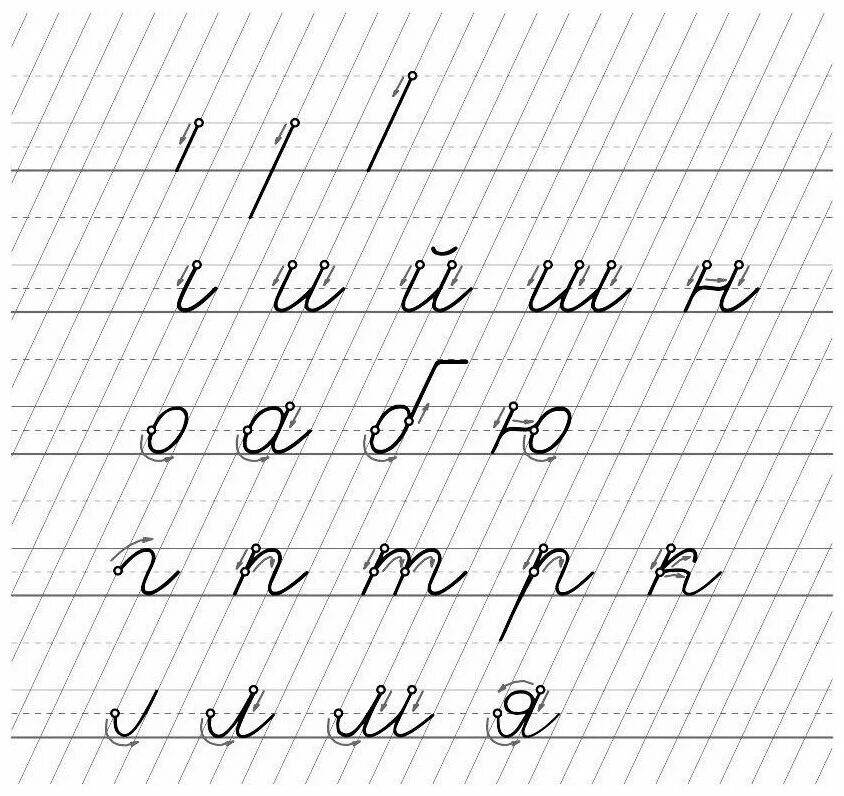 ι и й ш н
о а б ю
г п т р к
л м я